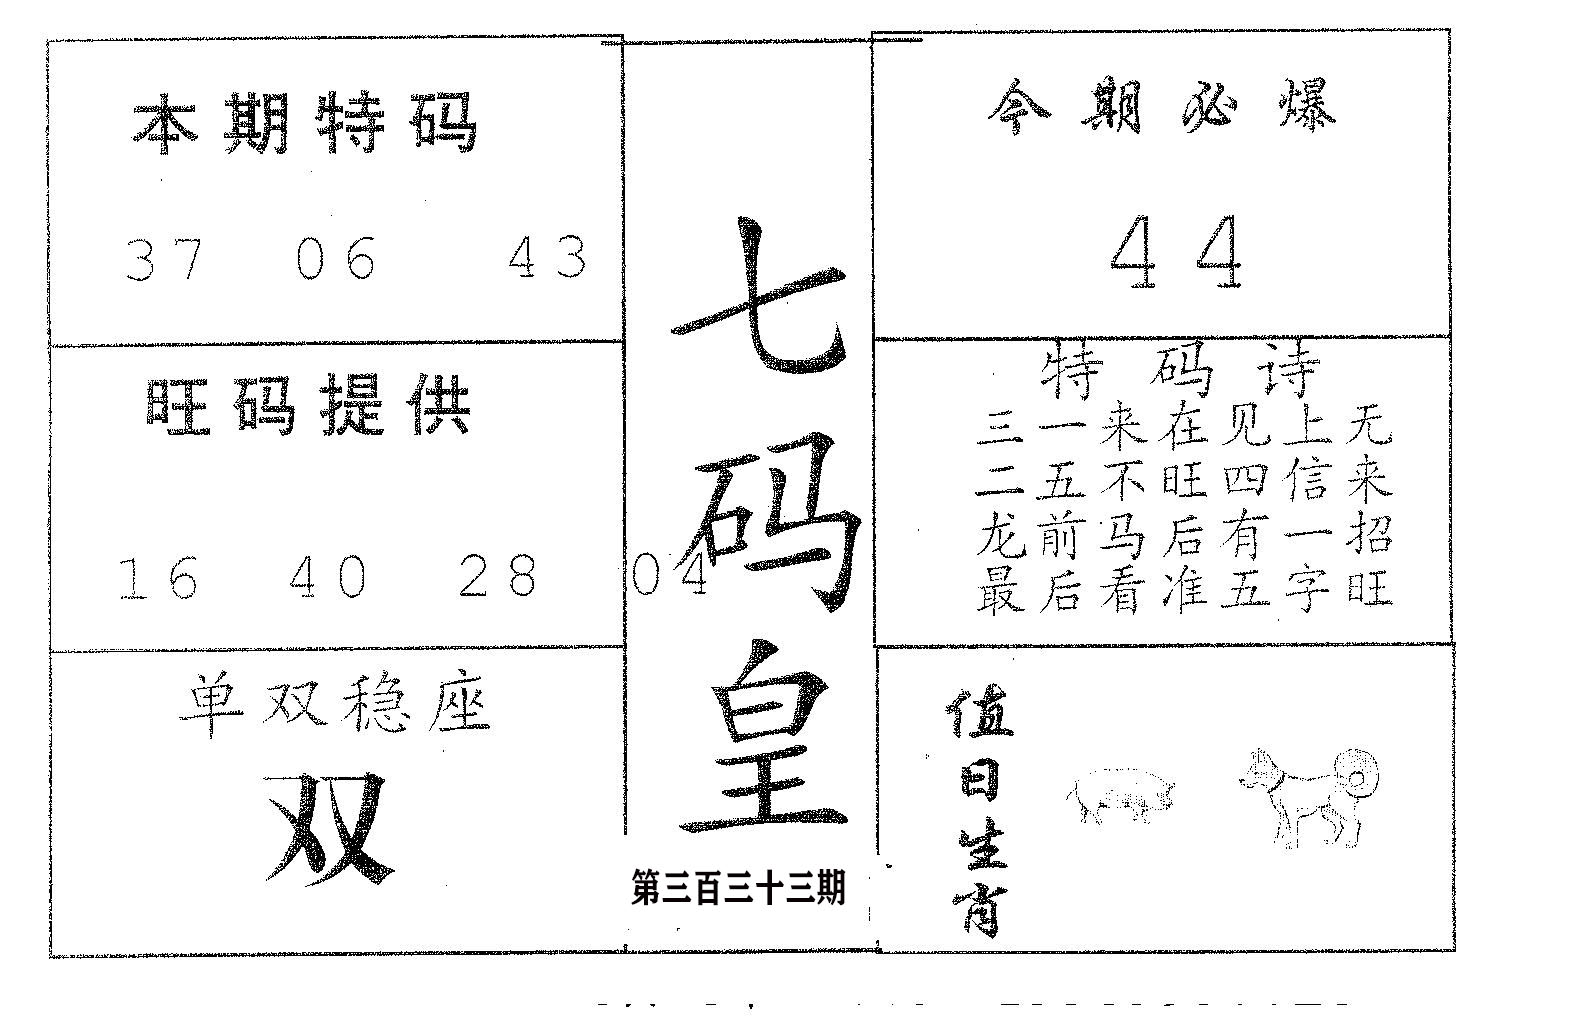 本期特码
37 06 43
旺码提供
16 40 28 04
单双稳座
双
七码皇
第三百三十三期
今期必爆
44
特码诗
三一来在见上无
二五不旺四信来
龙前马后有一招
最后看准五字旺
值日生肖